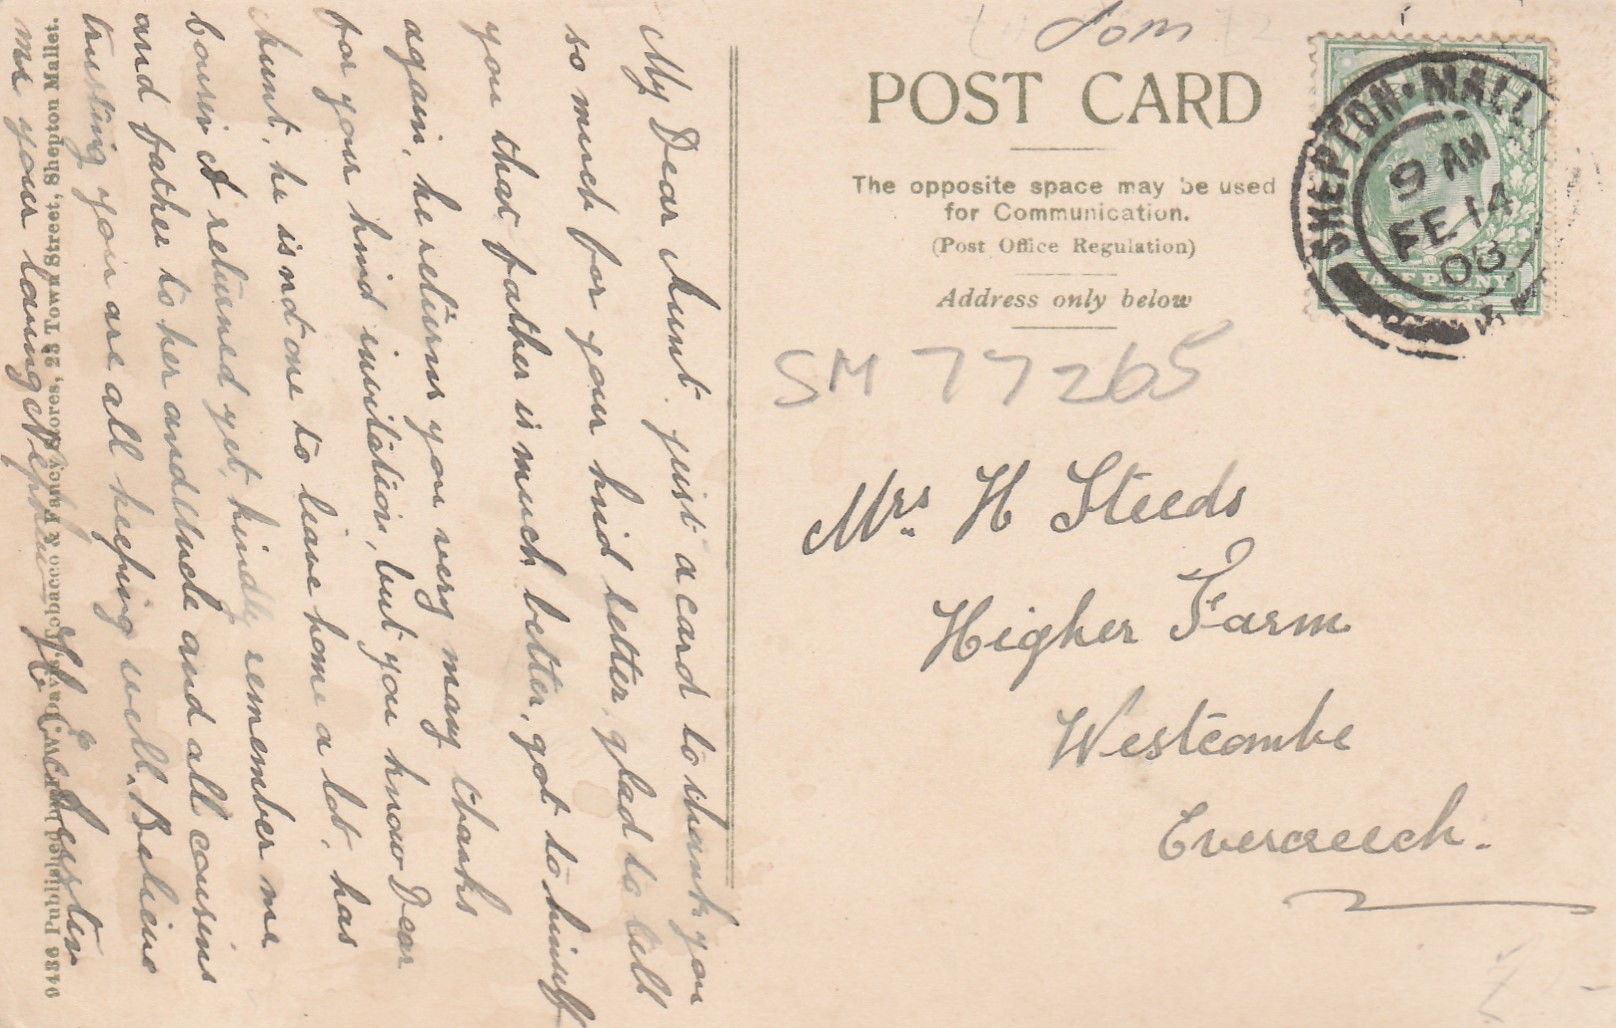 My Dear Aunt, just a card to thank you
so much for your kind letter, glad to tell
you that father is much better, got to himself
again, he returns you very many thanks
for your kind invitation, but you know Dear
Aunt, he is not one to leave home a lot, has
cousin A returned yet, kindly remember me
and father to her and Uncle and all cousins
trusting you are all keeping well. Believe
me your loving Nephew
H. J.
9486 Published by C.W. Davis, Tobacco & Fancy Stores, 23 Town Street, Shepton Mallet.
Som
POST CARD
The opposite space may be used
for Communication.
(Post Office Regulation)
Address only below
SHEPTON·MALL
9 AM
FE 14
08
SM 77265
Mrs H Steeds
Higher Farm
Westcombe
Evercreech.